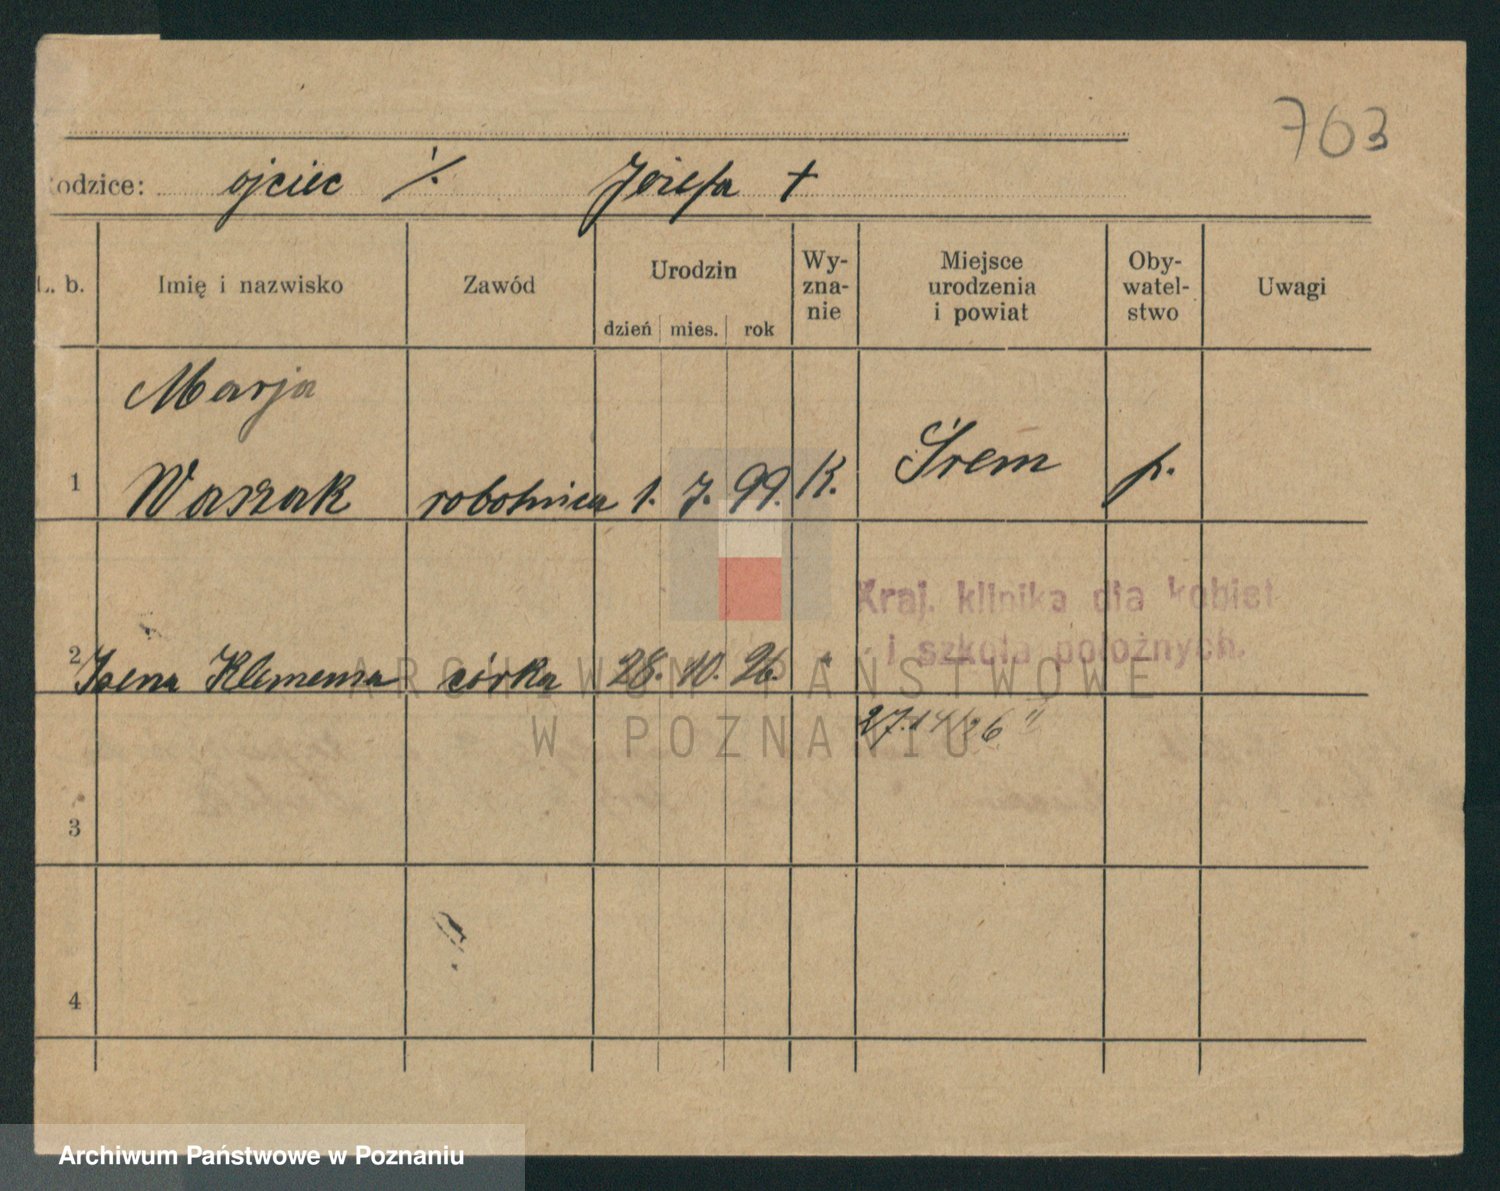 763
odzice: ojciec ·/. Józefa +
L. b. Imię i nazwisko Zawód Urodzin dzień mies. rok Wy-zna-nie Miejsce urodzenia i powiat Oby-watel-stwo Uwagi
Marja
1 Waszak robotnica 1. 7. 99. K. Śrem p.
Kraj. klinika dla kobiet
i szkoła położnych.
2 Irena Klemensa córka 28. 10. 26. "
ARCHIWUM PAŃSTWOWE
W POZNANIU
3
4
Archiwum Państwowe w Poznaniu